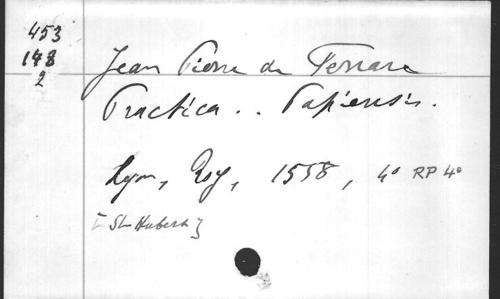 453
178
2
Jean Pierre de Ferrare
Practica .. Papiensis.
Lyon, Roy, 1558, 4° RP 4°
[St Hubert]